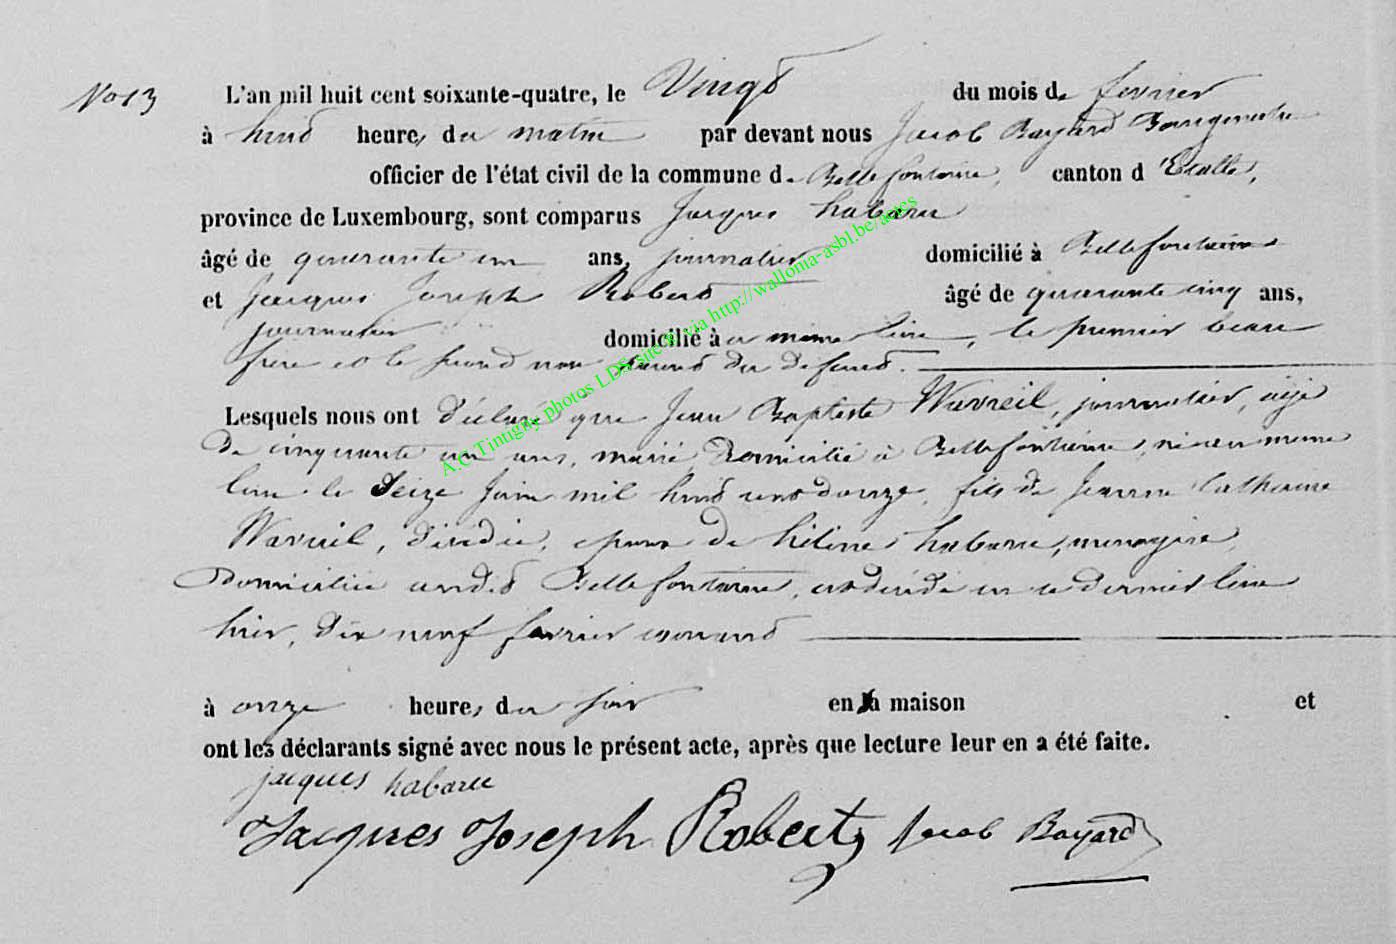 No 13
L'an mil huit cent soixante-quatre, le Vingt du mois de février
à huit heures du matin par devant nous Jacob Bayard Bourgmestre
officier de l'état civil de la commune de Bellefontaine, canton d'Etalle,
province de Luxembourg, sont comparus Jacques habaru
âgé de quarante un ans, journalier domicilié à Bellefontaine
et Jacques Joseph Robert âgé de quarante cinq ans,
journalier domicilié à au même lieu, le premier beau
frère et le second non parent du défunt.
Lesquels nous ont déclaré que Jean Baptiste Wavreil, journalier, âgé
de cinquante un ans, marié, domicilié à Bellefontaine, né au même
lieu le Seize Juin mil huit cent douze, fils de Jeanne Catherine
Wavreil, décédée, époux de hélène habaru, menagère,
domiciliée audit Bellefontaine, est décédé en ce dernier lieu
hier, dix neuf février courant
à onze heures du soir en sa maison et
ont les déclarants signé avec nous le présent acte, après que lecture leur en a été faite.
jacques habaru
Jacques Joseph Robert Jacob Bayard
A.C. Tintigny photos LDS site via http://wallonia-asbl.be/actes